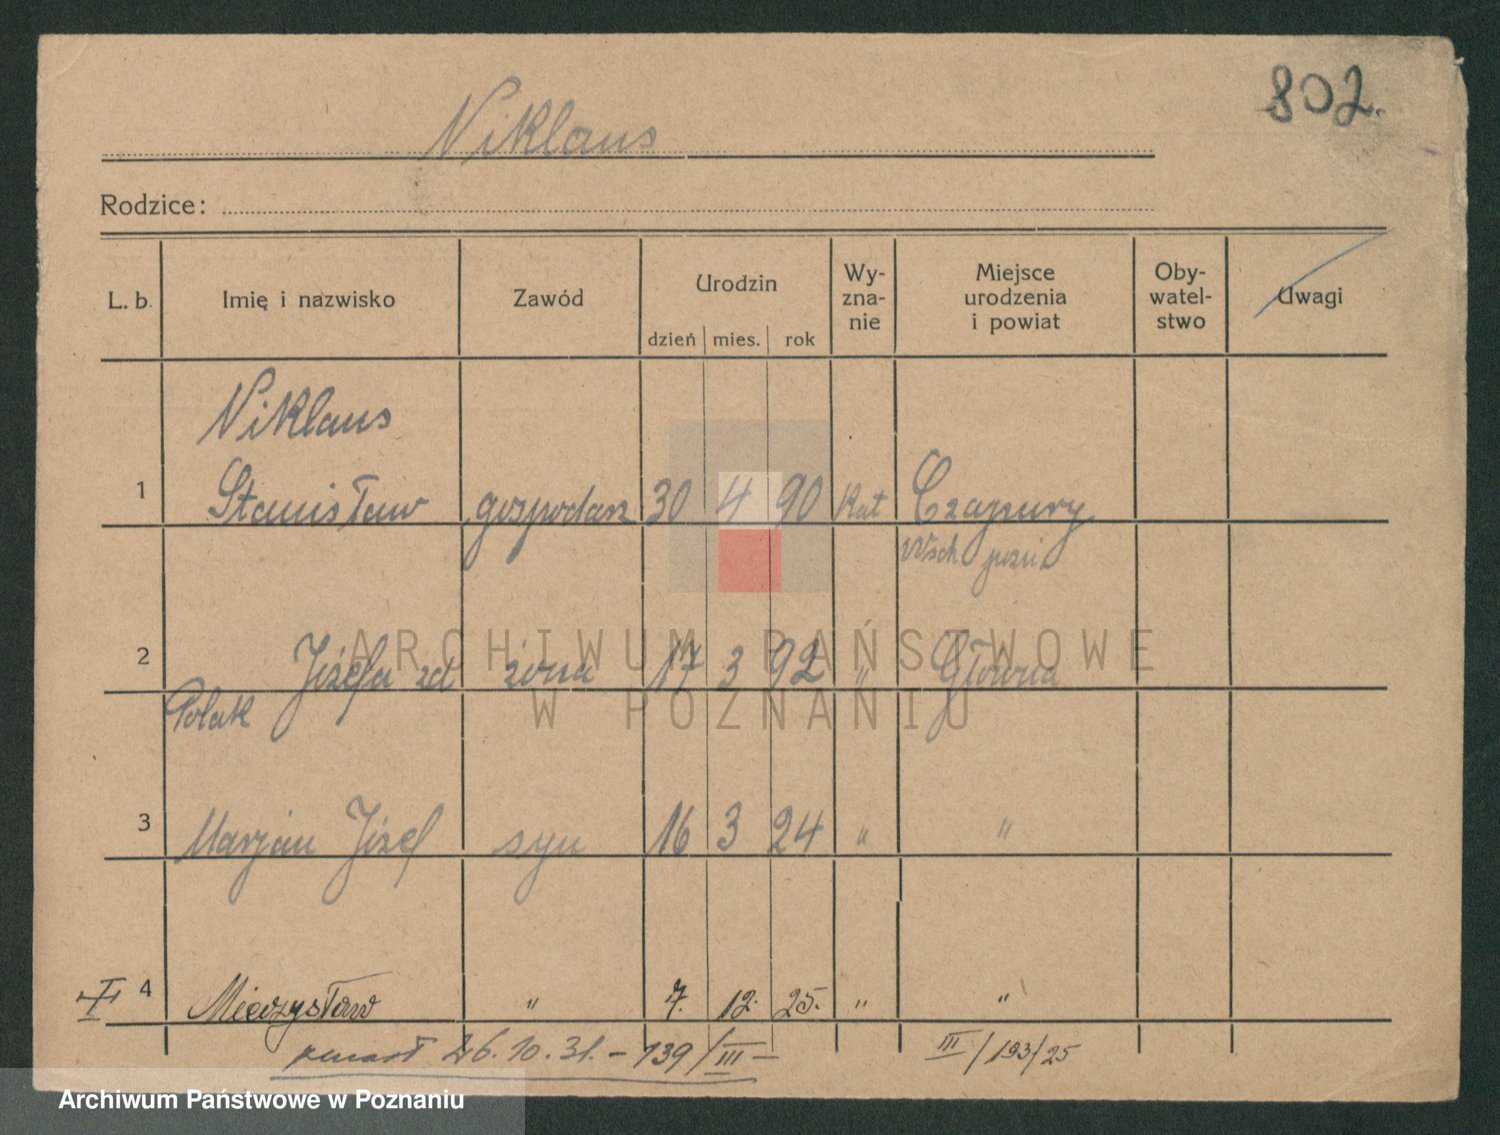 802.
Niklaus
Rodzice:
L. b. Imię i nazwisko Zawód Urodzin Wy-zna-nie Miejsce urodzenia i powiat Oby-watel-stwo Uwagi
dzień mies. rok
Niklaus
1 Stanisław gospodarz 30 4 90 kat Czapury
Wsch pozn
2 Józefa zd żona 17 3 92 " Główna
Polak
3 Marjan Józef syn 16 3 24 " "
4 Mieczysław " 7. 12. 25. " "
zmarł 26.10.31. - 139/III - III/193/25
ARCHIWUM PAŃSTWOWE
W POZNANIU
Archiwum Państwowe w Poznaniu